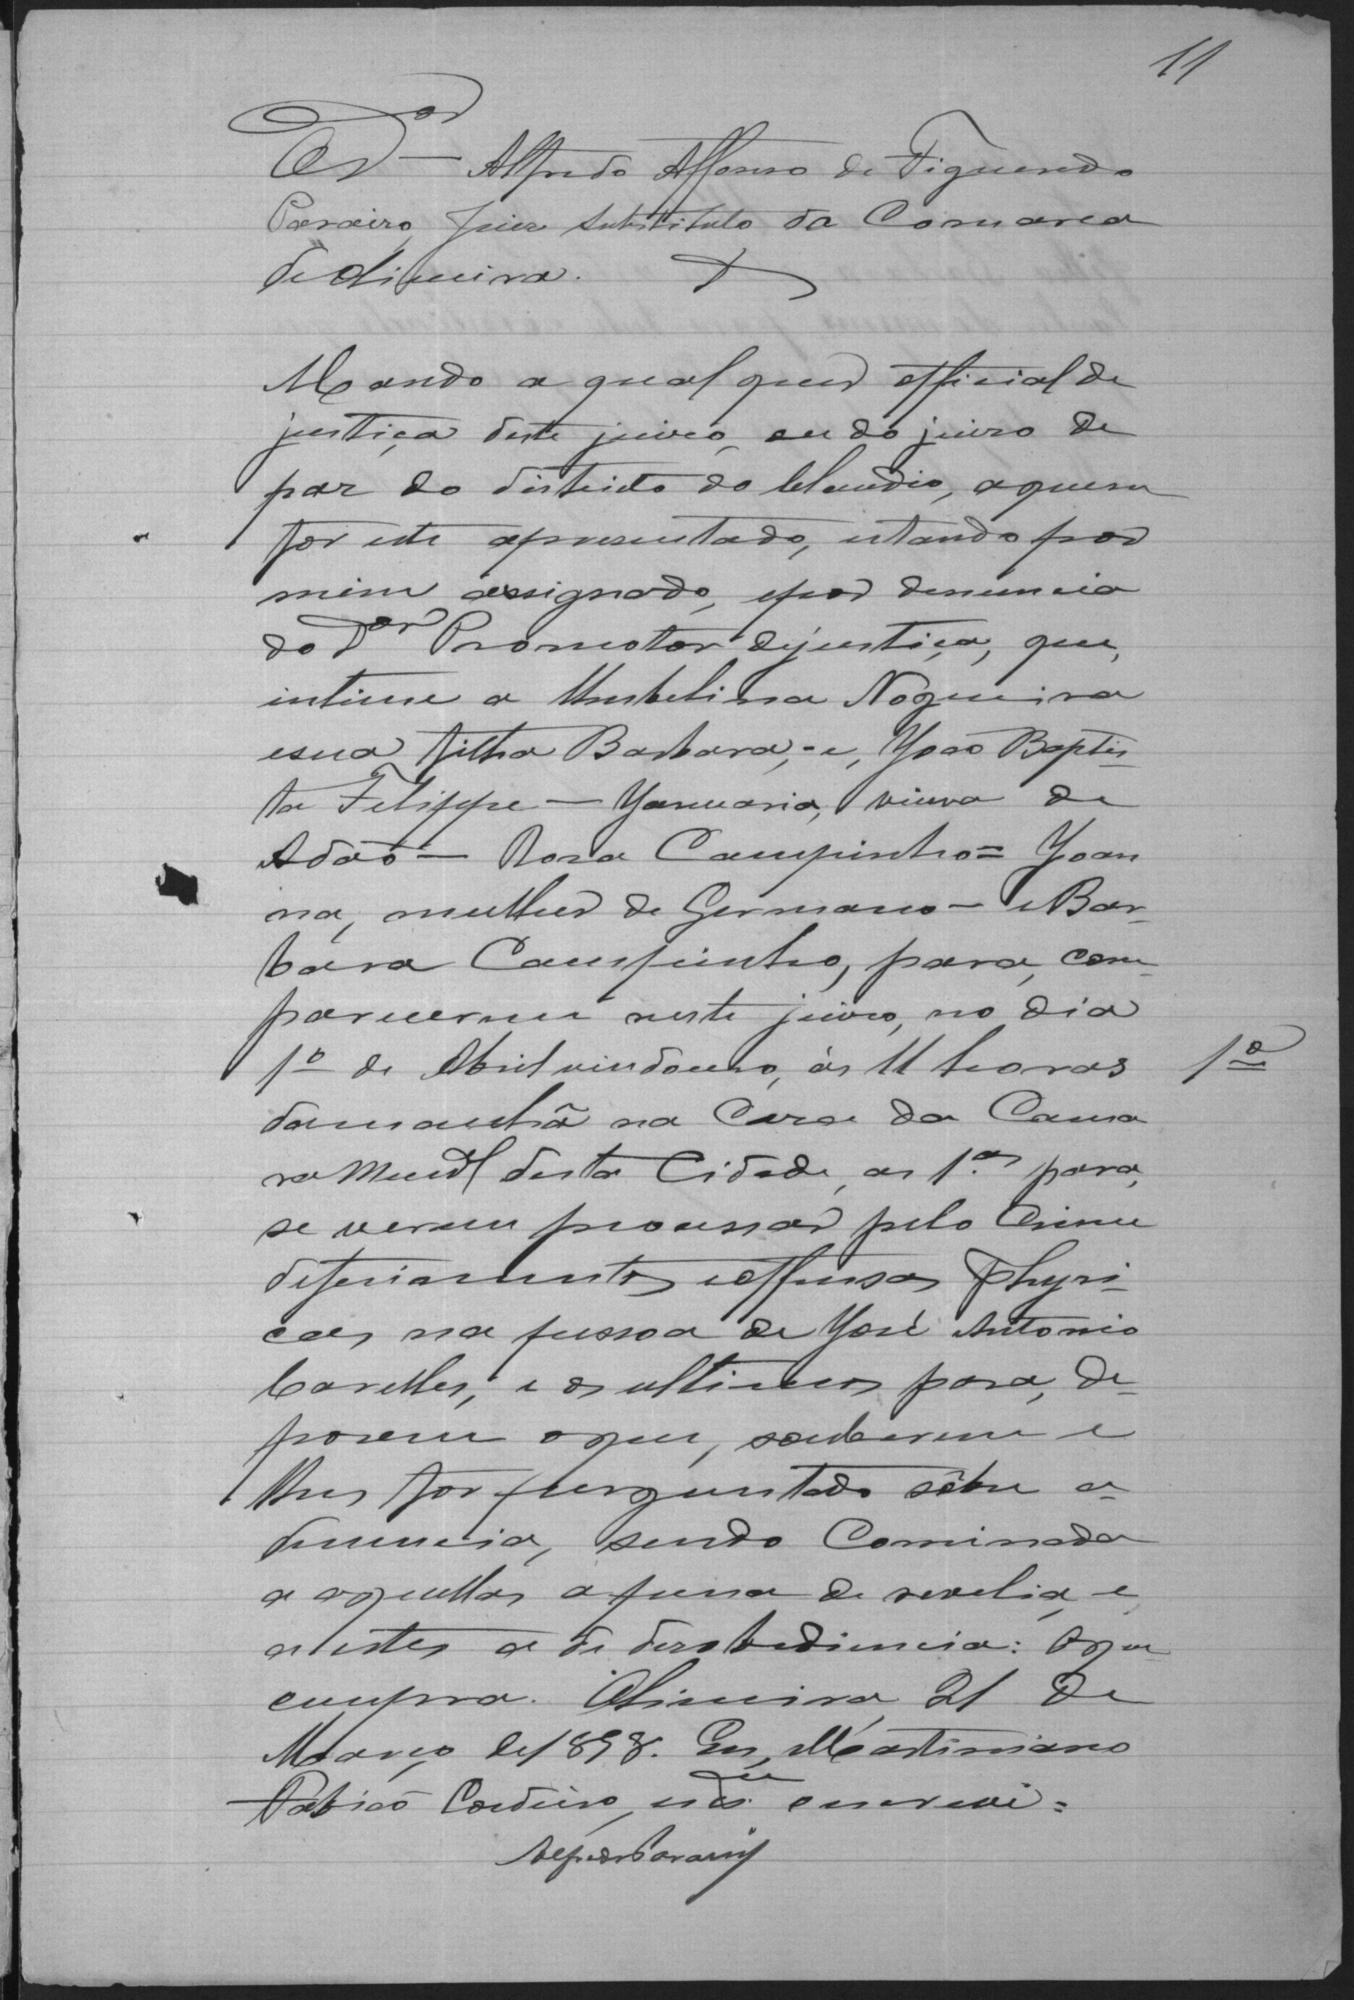 11
O Dor Alfredo Affonso de Figueredo
Paraizo, Juiz substituto da Comarca
de Oliveira.
Mando a qualquer official de
justiça deste juizo, ou do juizo de
paz do districto do Claudio, a quem
for este apresentado, estando por
mim assignado, e por denuncia
do Dor Promotor de justiça, que,
intime a Umbelina Nogueira
e sua filha Barbara, e, João Baptis-
ta Felippe — Januaria, viuva de
Adão — Rosa Campinho = Joan
na, mulher de Germano — e Bar-
bara Campinho, para, com-
parecerem neste juizo, no dia
1º de Abril vindouro, ás 11 horas
1º
da manhã na Casa da Cama
ra Munal desta Cidade, as 1.as para,
se verem processar pelo Crime
de ferimentos e offensas phyzi-
cas, na pessoa de José Antonio
, e os ultimos para, de-
porem o que, souberem e
lhes for perguntado sobre a
denuncia, sendo Cominada
a aquellas a pena de revelia, e
a estes a de desobediencia: O que
cumpra. Oliveira, 21 de
Março de 1898. Eu, Martiniano
Cordeiro, escrivão que escrevi =
Alfredo Paraizo